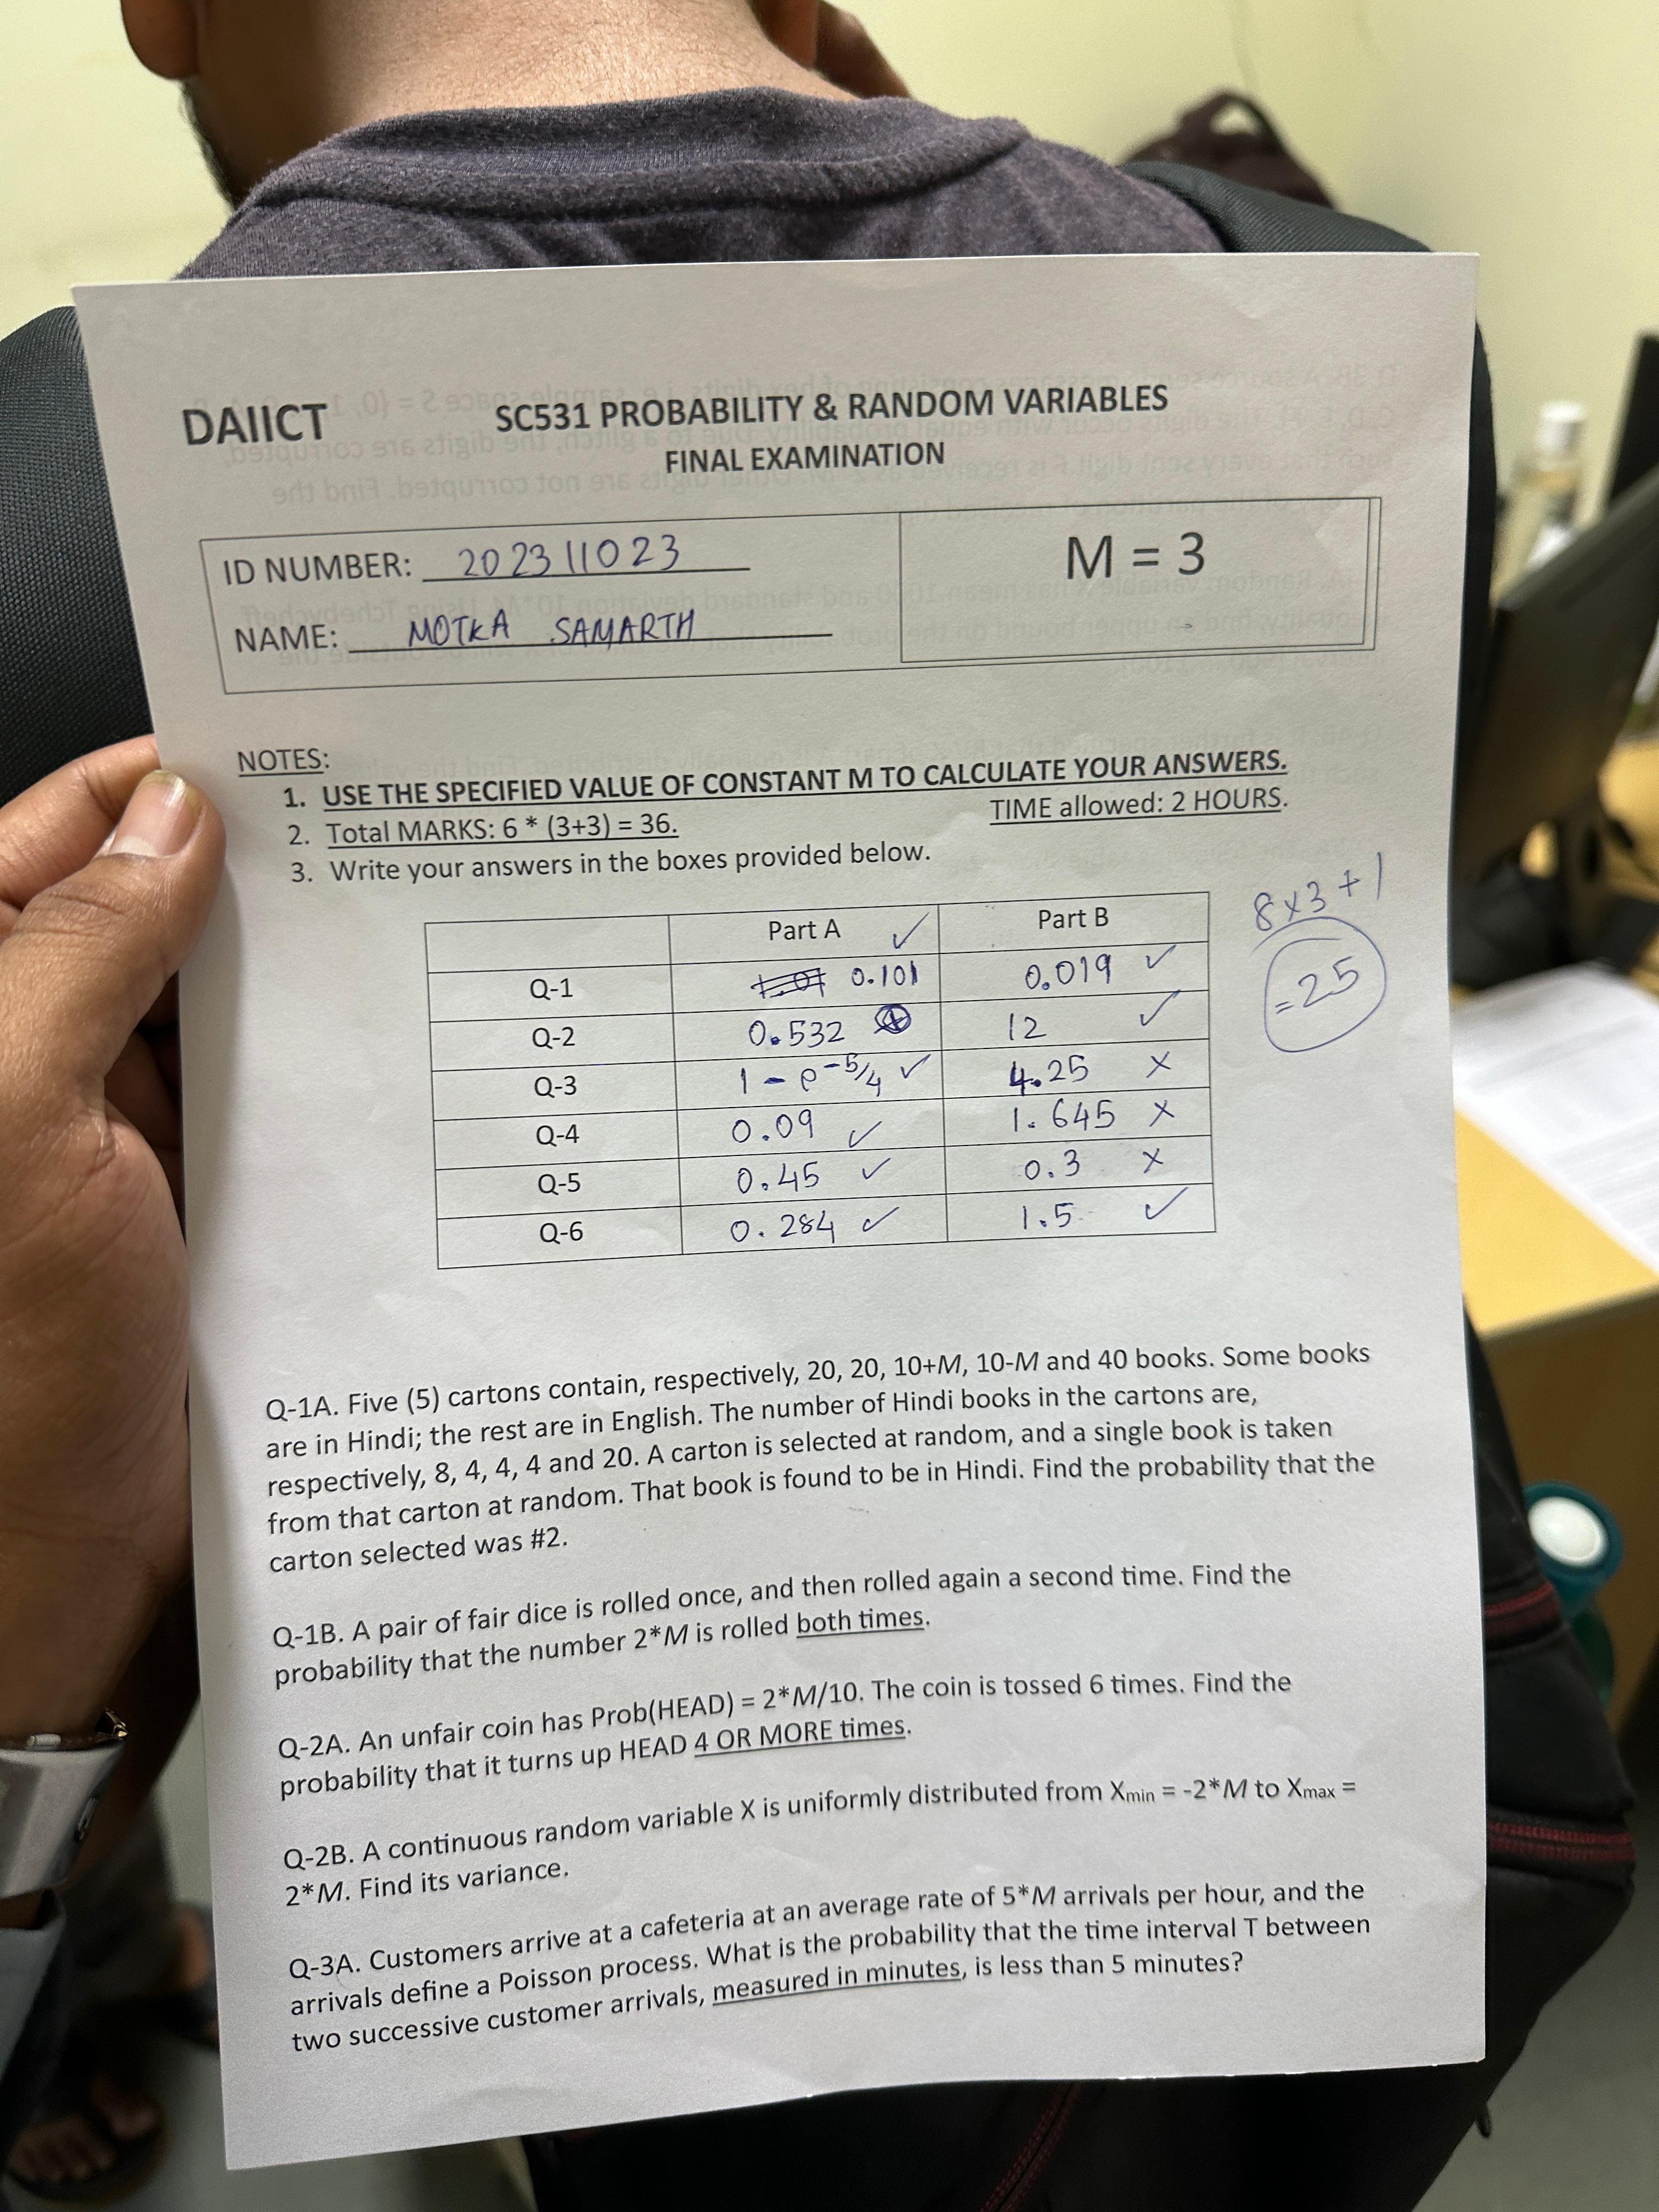 DAIICT
SC531 PROBABILITY & RANDOM VARIABLES
FINAL EXAMINATION
ID NUMBER: 202311023
NAME: MOTKA SAMARTH
M = 3
NOTES:
1. USE THE SPECIFIED VALUE OF CONSTANT M TO CALCULATE YOUR ANSWERS.
2. Total MARKS: 6 * (3+3) = 36. TIME allowed: 2 HOURS.
3. Write your answers in the boxes provided below.
8x3+1
=25
Part A ✓ Part B
Q-1 0.101 0.019 ✓
Q-2 0.532 12 ✓
Q-3 1-e-5/4 ✓ 4.25 ×
Q-4 0.09 ✓ 1.645 ×
Q-5 0.45 ✓ 0.3 ×
Q-6 0.284 ✓ 1.5 ✓
Q-1A. Five (5) cartons contain, respectively, 20, 20, 10+M, 10-M and 40 books. Some books
are in Hindi; the rest are in English. The number of Hindi books in the cartons are,
respectively, 8, 4, 4, 4 and 20. A carton is selected at random, and a single book is taken
from that carton at random. That book is found to be in Hindi. Find the probability that the
carton selected was #2.
Q-1B. A pair of fair dice is rolled once, and then rolled again a second time. Find the
probability that the number 2*M is rolled both times.
Q-2A. An unfair coin has Prob(HEAD) = 2*M/10. The coin is tossed 6 times. Find the
probability that it turns up HEAD 4 OR MORE times.
Q-2B. A continuous random variable X is uniformly distributed from Xmin = -2*M to Xmax =
2*M. Find its variance.
Q-3A. Customers arrive at a cafeteria at an average rate of 5*M arrivals per hour, and the
arrivals define a Poisson process. What is the probability that the time interval T between
two successive customer arrivals, measured in minutes, is less than 5 minutes?